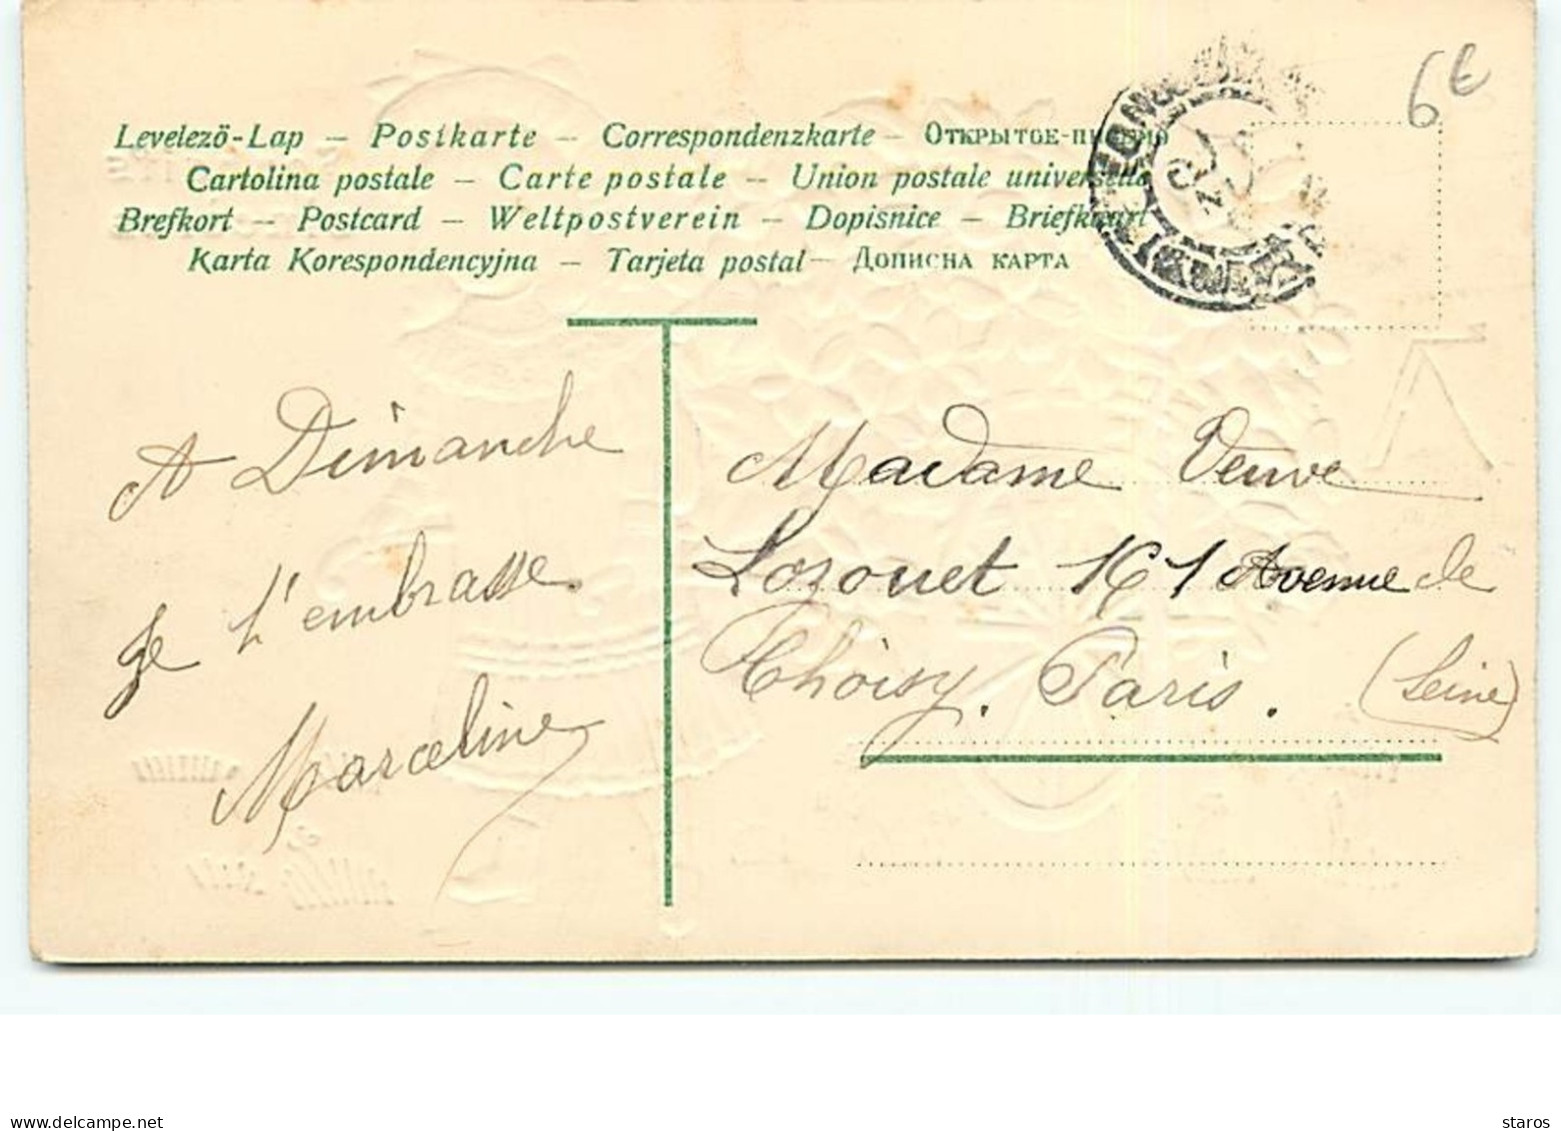 Levelező-Lap – Postkarte – Correspondenzkarte – Открытое-письмо
Cartolina postale – Carte postale – Union postale universelle
Brefkort – Postcard – Weltpostverein – Dopisnice – Briefkaart
Karta Korespondencyjna – Tarjeta postal – Дописна карта
6€
A Dimanche
Je t'embrasse
Marceline
Madame Veuve
Lozouet 161 Avenue de
Choisy. Paris. (Seine)
www.delcampe.net
staros